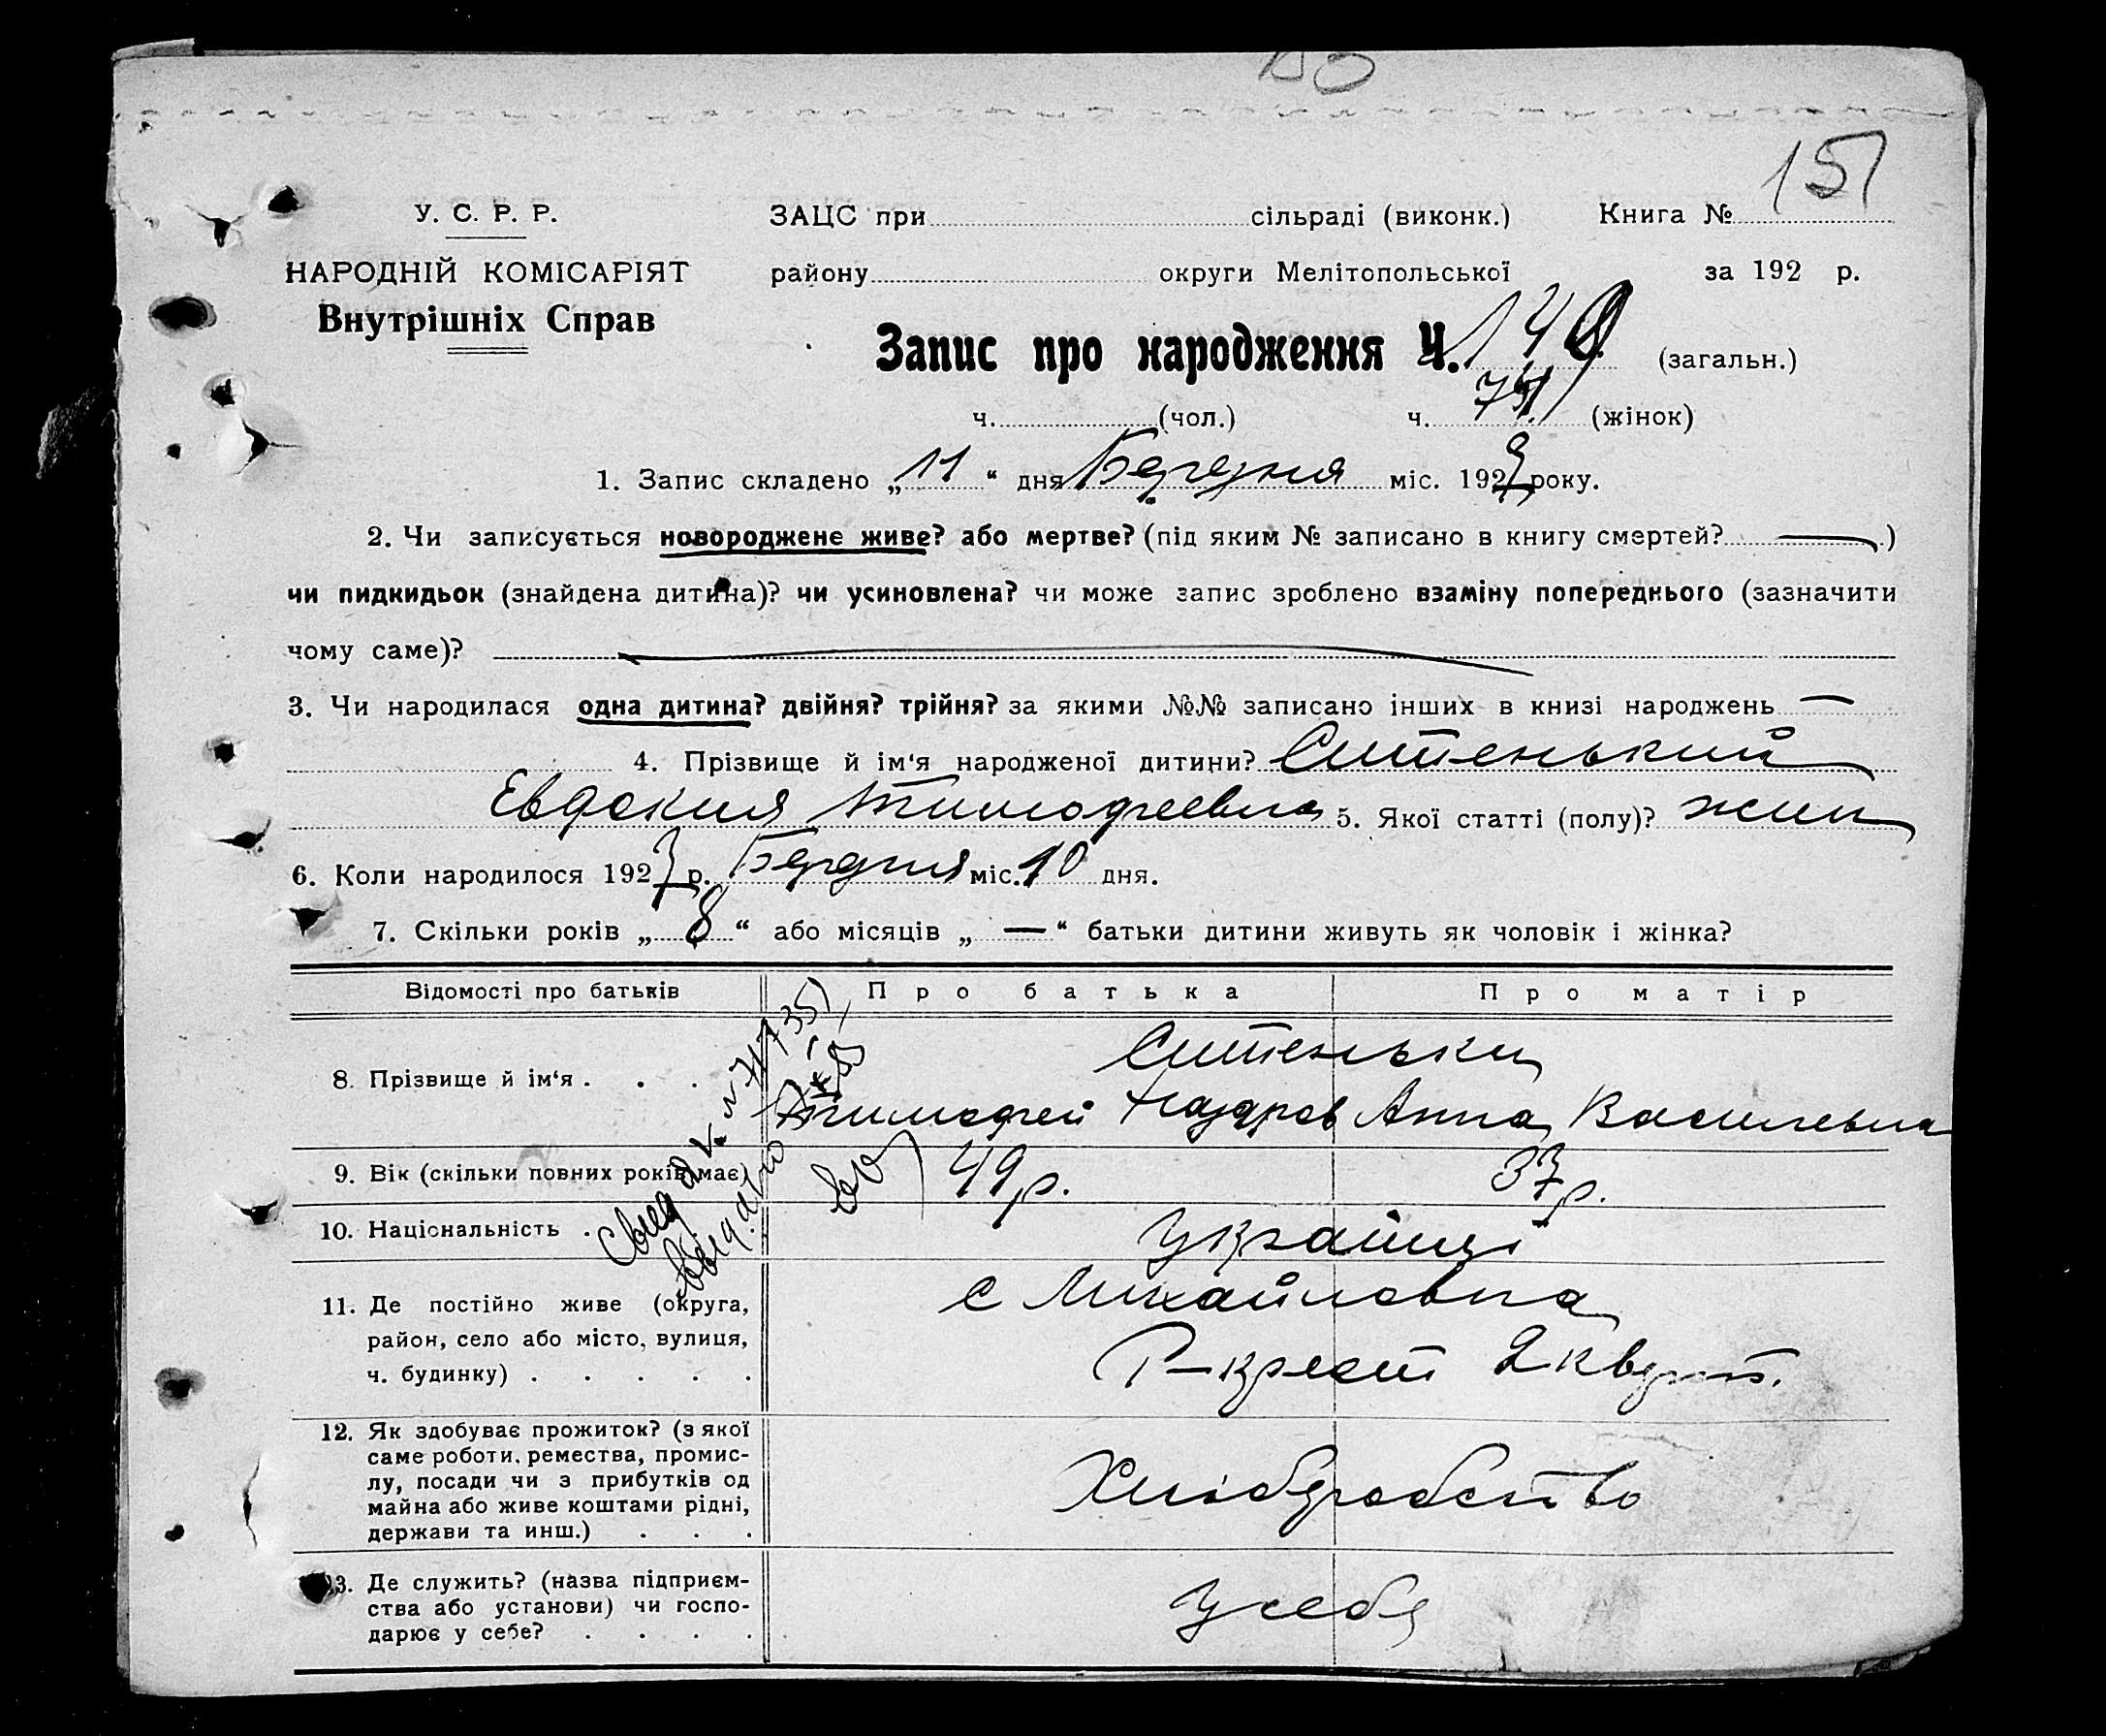 151
У. С. Р. Р. ЗАЦС при сільраді (виконк.) Книга №
НАРОДНІЙ КОМІСАРІЯТ району округи Мелітопольської за 192 р.
Внутрішніх Справ
Запис про народження Ч. 140 (загальн.)
ч. (чол.) ч. 71 (жінок)
1. Запис складено „ 11 “ дня Березня міс. 192 року.
2. Чи записується новороджене живе? або мертве? (під яким № записано в книгу смертей? — )
чи пидкидьок (знайдена дитина)? чи усиновлена? чи може запис зроблено взаміну попереднього (зазначити
чому саме)?
3. Чи народилася одна дитина? двійня? трійня? за якими №№ записано інших в книзі народжень —
4. Прізвище й ім‘я народженої дитини? Ситенький
Евдокия Тимофеевна 5. Якої статті (полу)? жин
6. Коли народилося 1927 р. Березня міс. 10 дня.
7. Скільки років „ 8 “ або місяців „ — “ батьки дитини живуть як чоловік і жінка?
Відомості про батьків Про батька Про матір
Ситеньки
8. Прізвище й ім‘я . . . Тимофей Назаров Анна Василевна
9. Вік (скільки повних років має) 49 р. 37 р.
10. Національність . Украинці
11. Де постійно живе (округа, с Михайловка
район, село або місто, вулиця,
ч. будинку) . . . . . Р-крест 2 кварт.
12. Як здобуває прожиток? (з якої
саме роботи, ремества, промис-
лу, посади чи з прибутків од Хліборобство
майна або живе коштами рідні,
держави та инш.) . . .
13. Де служить? (назва підприєм-
ства або установи) чи госпо- У себя
дарює у себе? . . . .